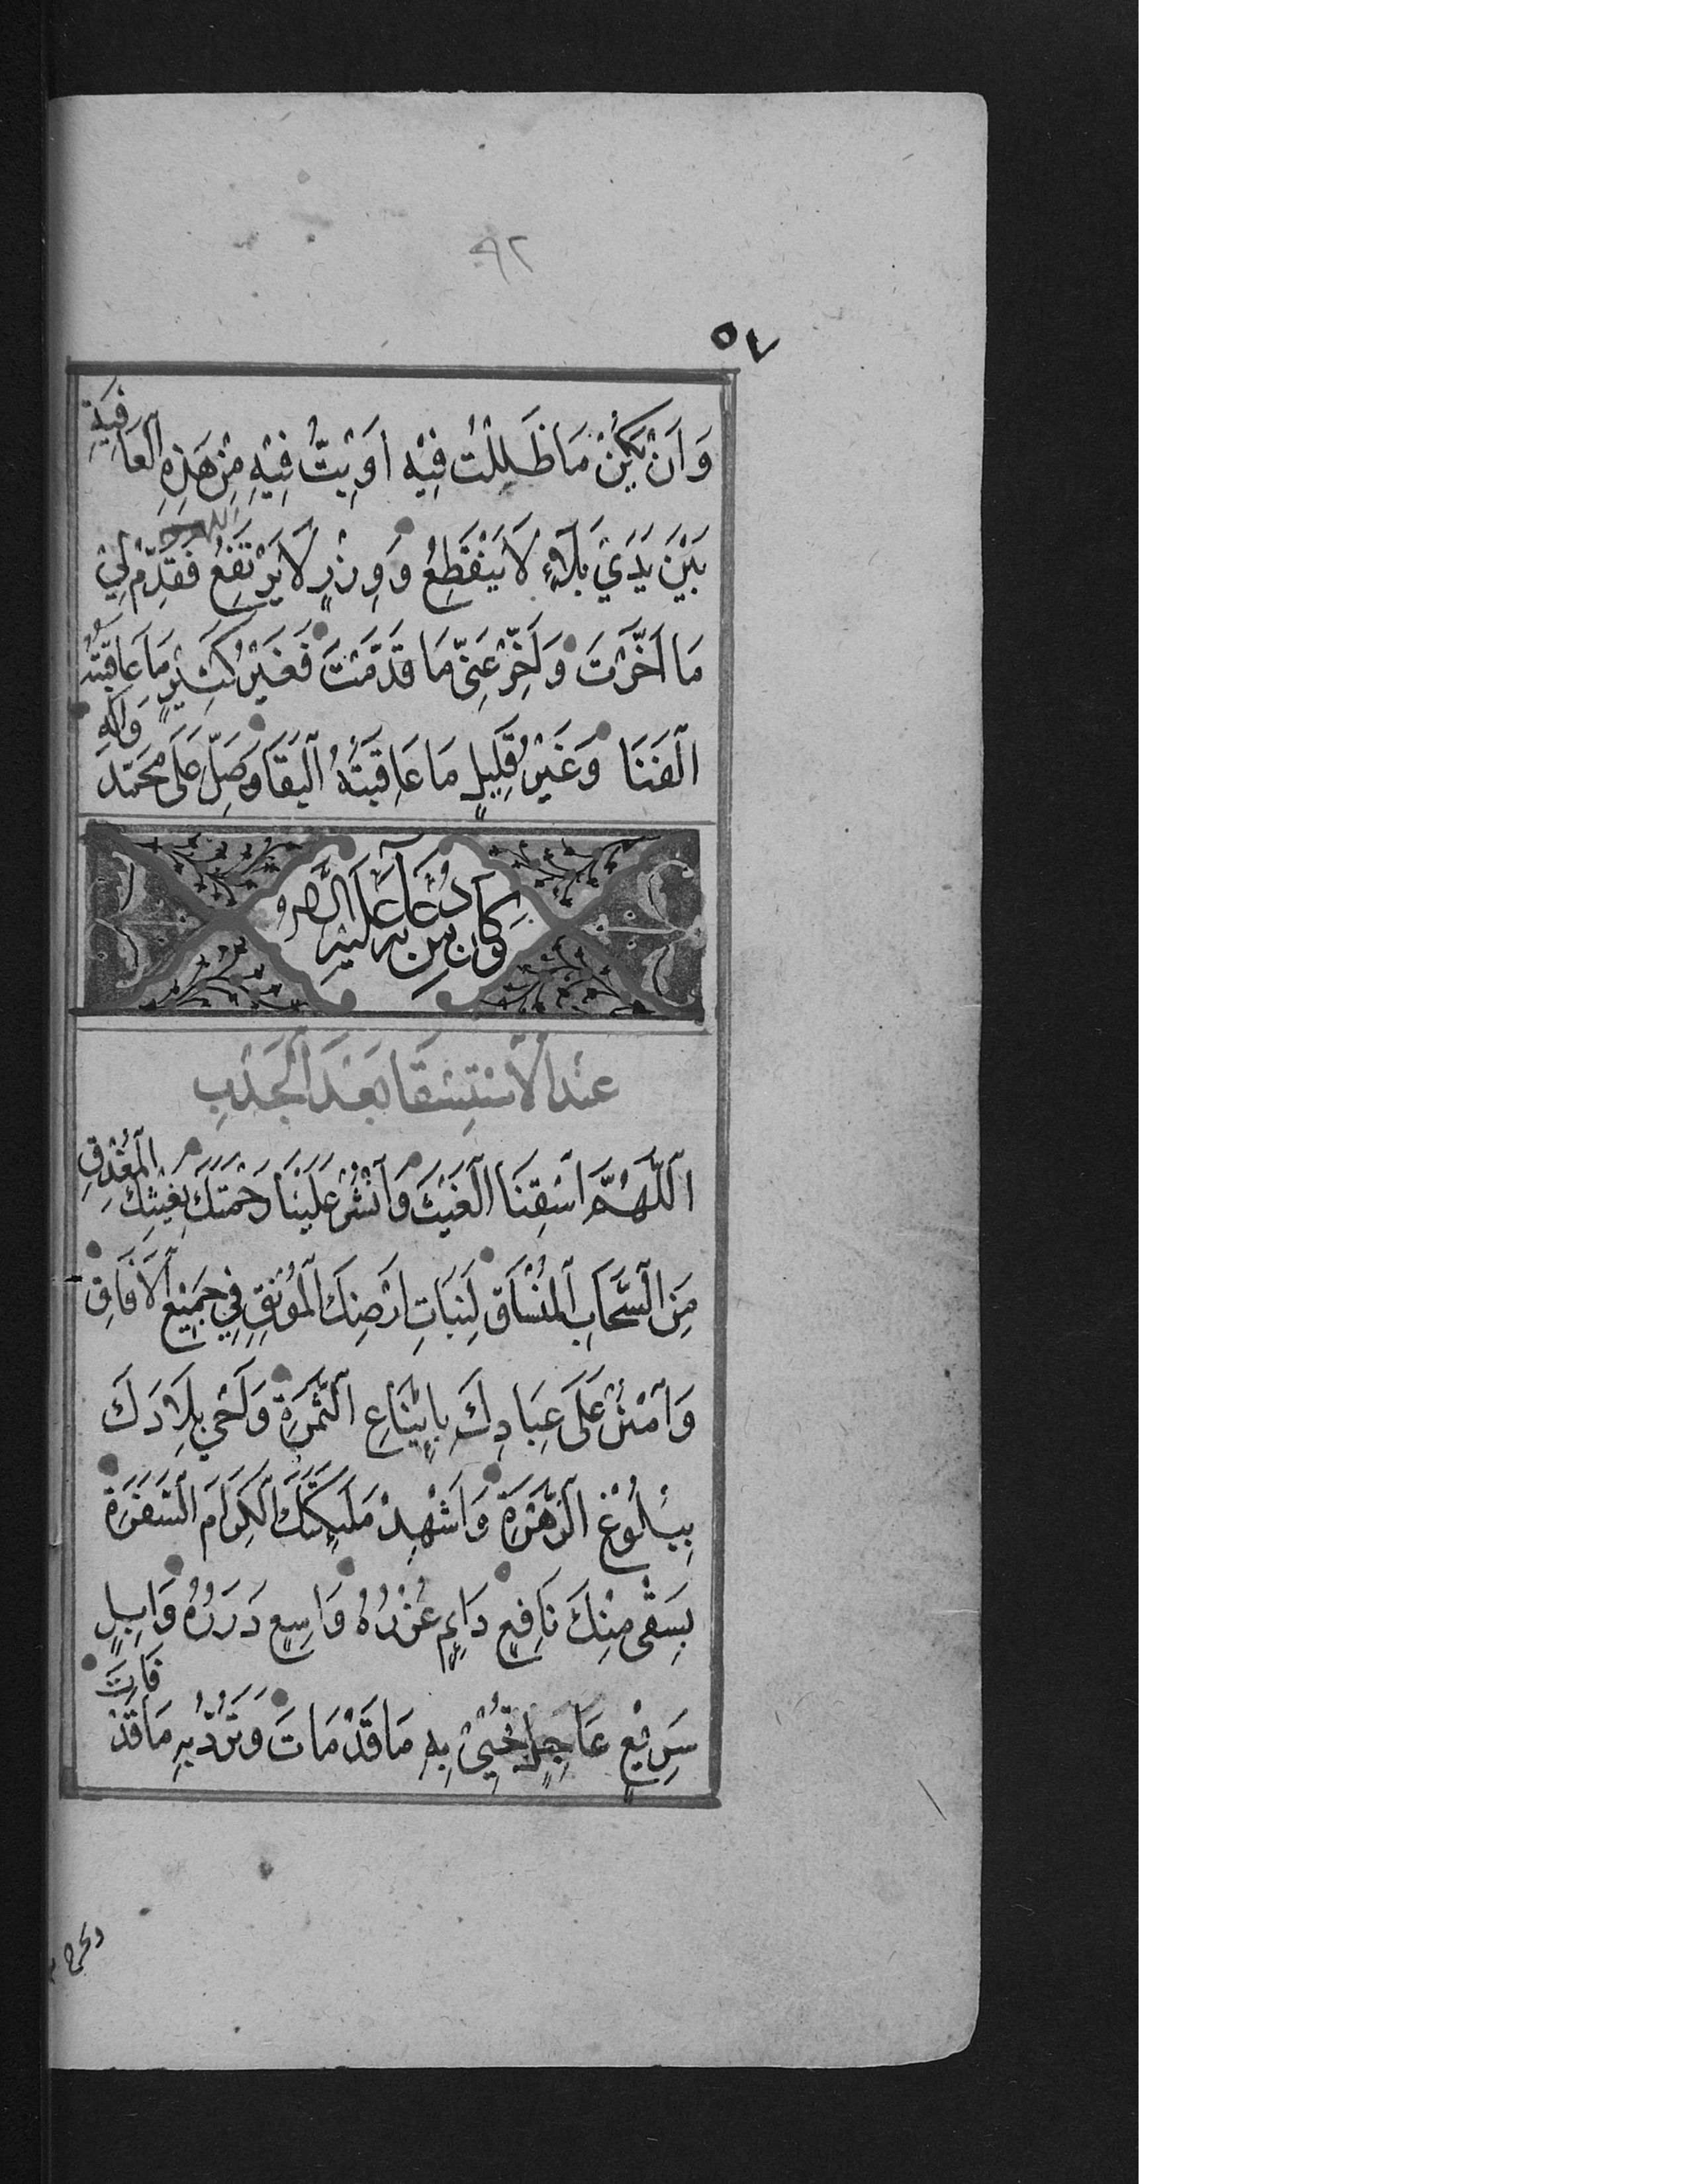 ٩٢
٥٧
وَاَنْ يَكُنْ مَا ظَلِلْتُ فِيْهِ اَوْ بِتُّ فِيْهِ مِنْ هَذِهِ الْعَافِيَةِ
بَيْنَ يَدَيْ بَلَآءٍ لَا يَنْقَطِعُ وَوِزْرٍ لَا يَرْتَفِعُ فَقَدِّمْ لِيْ
مَا اَخَّرْتَ وَاَخِّرْ عَنِّيْ مَا قَدَّمْتَ فَغَيْرُ كَثِيْرٍ مَا عَاقِبَتُهُ
الْفَنَا وَغَيْرُ قَلِيْلٍ مَا عَاقِبَتُهُ الْبَقَا وَصَلِّ عَلَى مُحَمَّدٍ وَاٰلِهِ
وَكَانَ مِنْ دُعَآئِهِ عَلَيْهِ
عِنْدَ الْاِسْتِسْقَا بَعْدَ الْجَدْبِ
اَللّٰهُمَّ اسْقِنَا الْغَيْثَ وَانْشُرْ عَلَيْنَا رَحْمَتَكَ بِغَيْثِكَ الْمُغْدِقِ
مِنَ السَّحَابِ الْمُنْسَاقِ لِنَبَاتِ اَرْضِكَ الْمُوْنِقِ فِيْ جَمِيْعِ الْاٰفَاقِ
وَامْنُنْ عَلَى عِبَادِكَ بِاِيْنَاعِ الثَّمَرَةِ وَاَحْيِ بِلَادَكَ
بِبُلُوْغِ الزَّهَرَةِ وَاَشْهِدْ مَلٰٓئِكَتَكَ الْكِرَامَ السَّفَرَةَ
بِسَقْيٍ مِنْكَ نَافِعٍ دَآئِمٍ غُزْرُهُ وَاسِعٍ دِرَرُهُ وَابِلٍ
سَرِيْعٍ عَاجِلٍ تُحْيِيْ بِهِ مَا قَدْ مَاتَ وَتَرُدُّ بِهِ مَا قَدْ فَاتَ